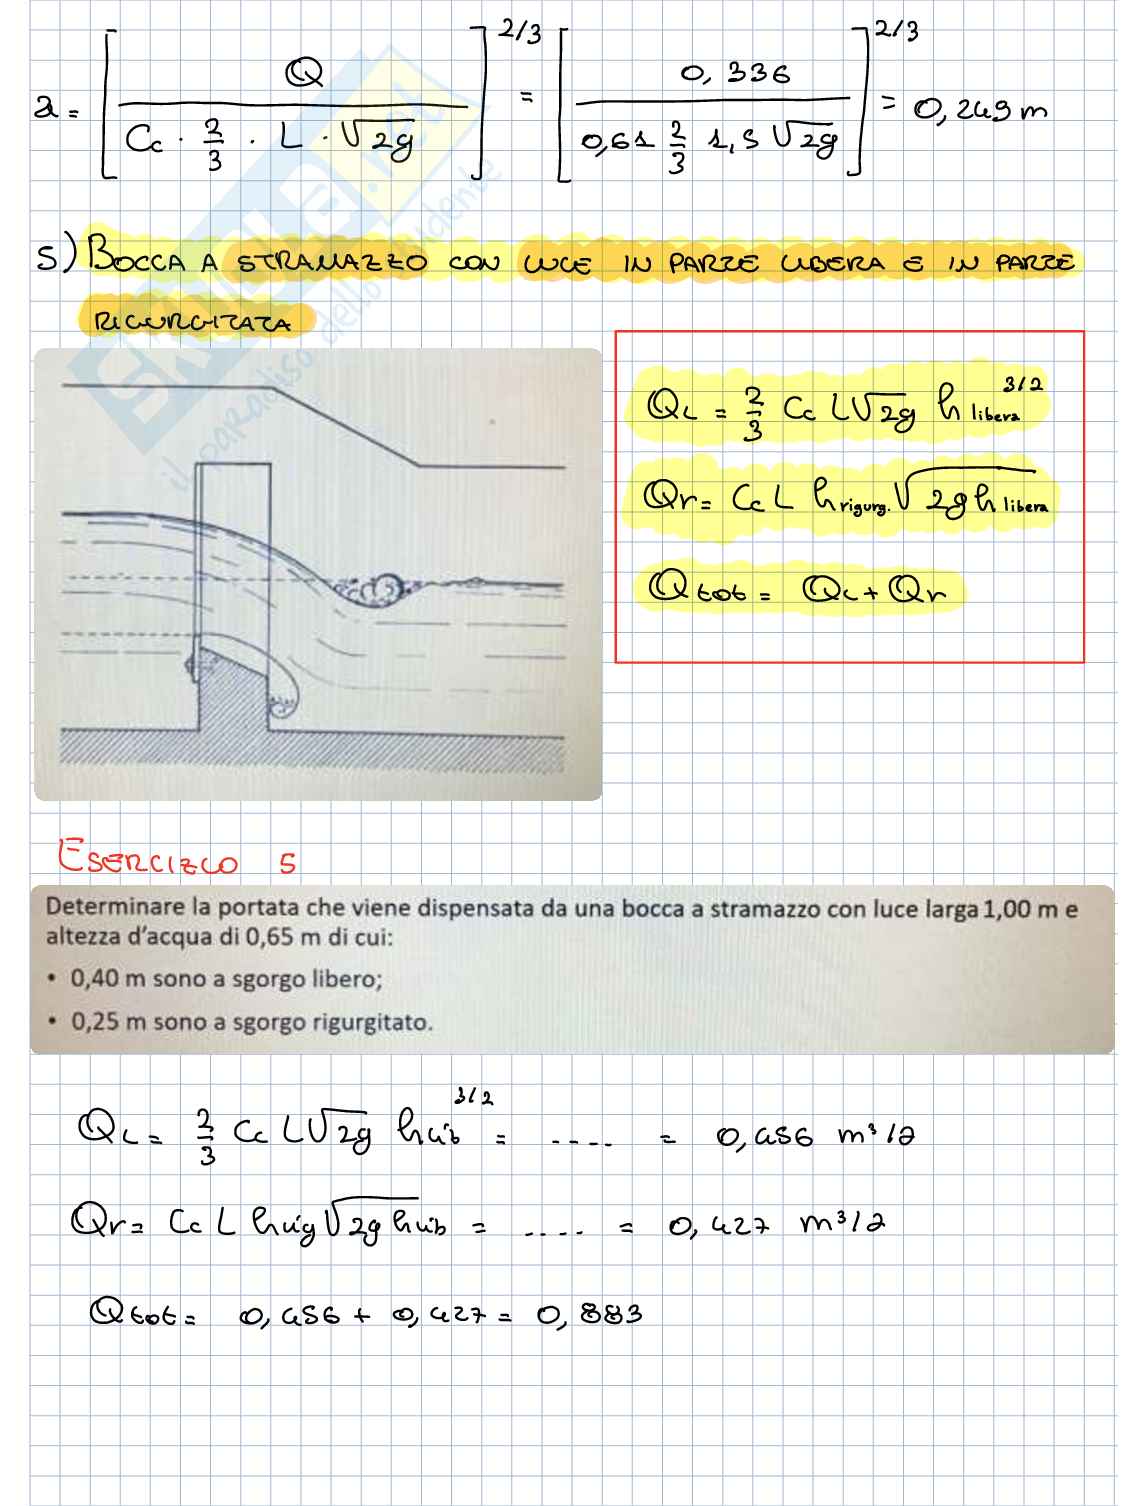 a = [ Q / (Cc · 2/3 · L · √2g) ]^2/3 = [ 0,336 / (0,61 2/3 1,5 √2g) ]^2/3 = 0,249 m
5) BOCCA A STRAMAZZO CON LUCE IN PARTE LIBERA E IN PARTE
RIGURGITATA
QL = 2/3 Cc L√2g h libera^3/2
Qr = Cc L h rigurg. √2g h libera
Qtot = QL + Qr
ESERCIZIO 5
Determinare la portata che viene dispensata da una bocca a stramazzo con luce larga 1,00 m e
altezza d'acqua di 0,65 m di cui:
• 0,40 m sono a sgorgo libero;
• 0,25 m sono a sgorgo rigurgitato.
QL = 2/3 Cc L√2g h lib^3/2 = .... = 0,456 m³/s
Qr = Cc L h rig √2g h lib = .... = 0,427 m³/s
Qtot = 0,456 + 0,427 = 0,883
SKUOLA.net
il paradiso dello studente